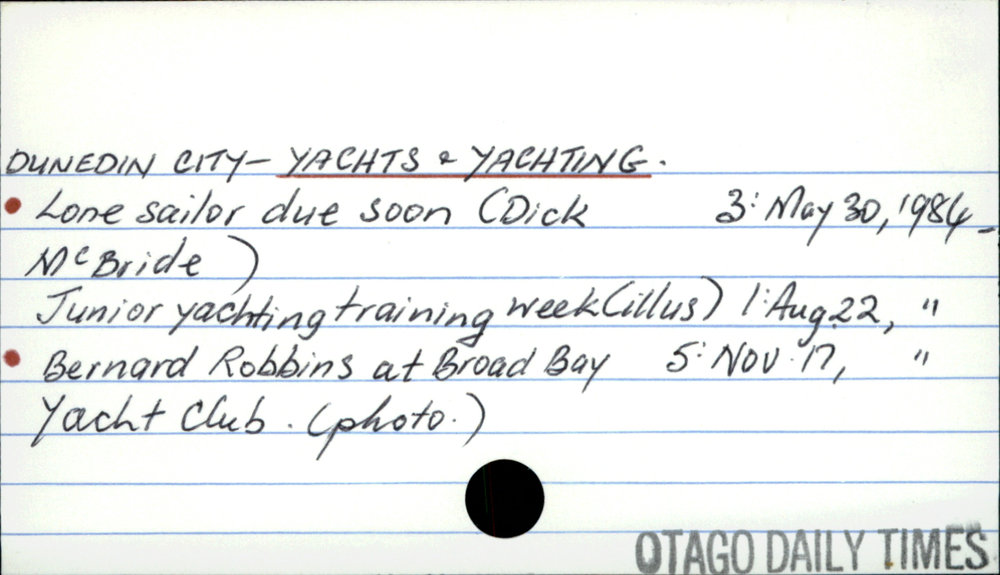 DUNEDIN CITY – YACHTS & YACHTING.
• Lone sailor due soon (Dick 3: May 30, 1984
McBride)
Junior yachting training week (illus) 1: Aug. 22, "
• Bernard Robbins at Broad Bay 5: Nov. 17, "
Yacht Club. (photo.)
OTAGO DAILY TIMES